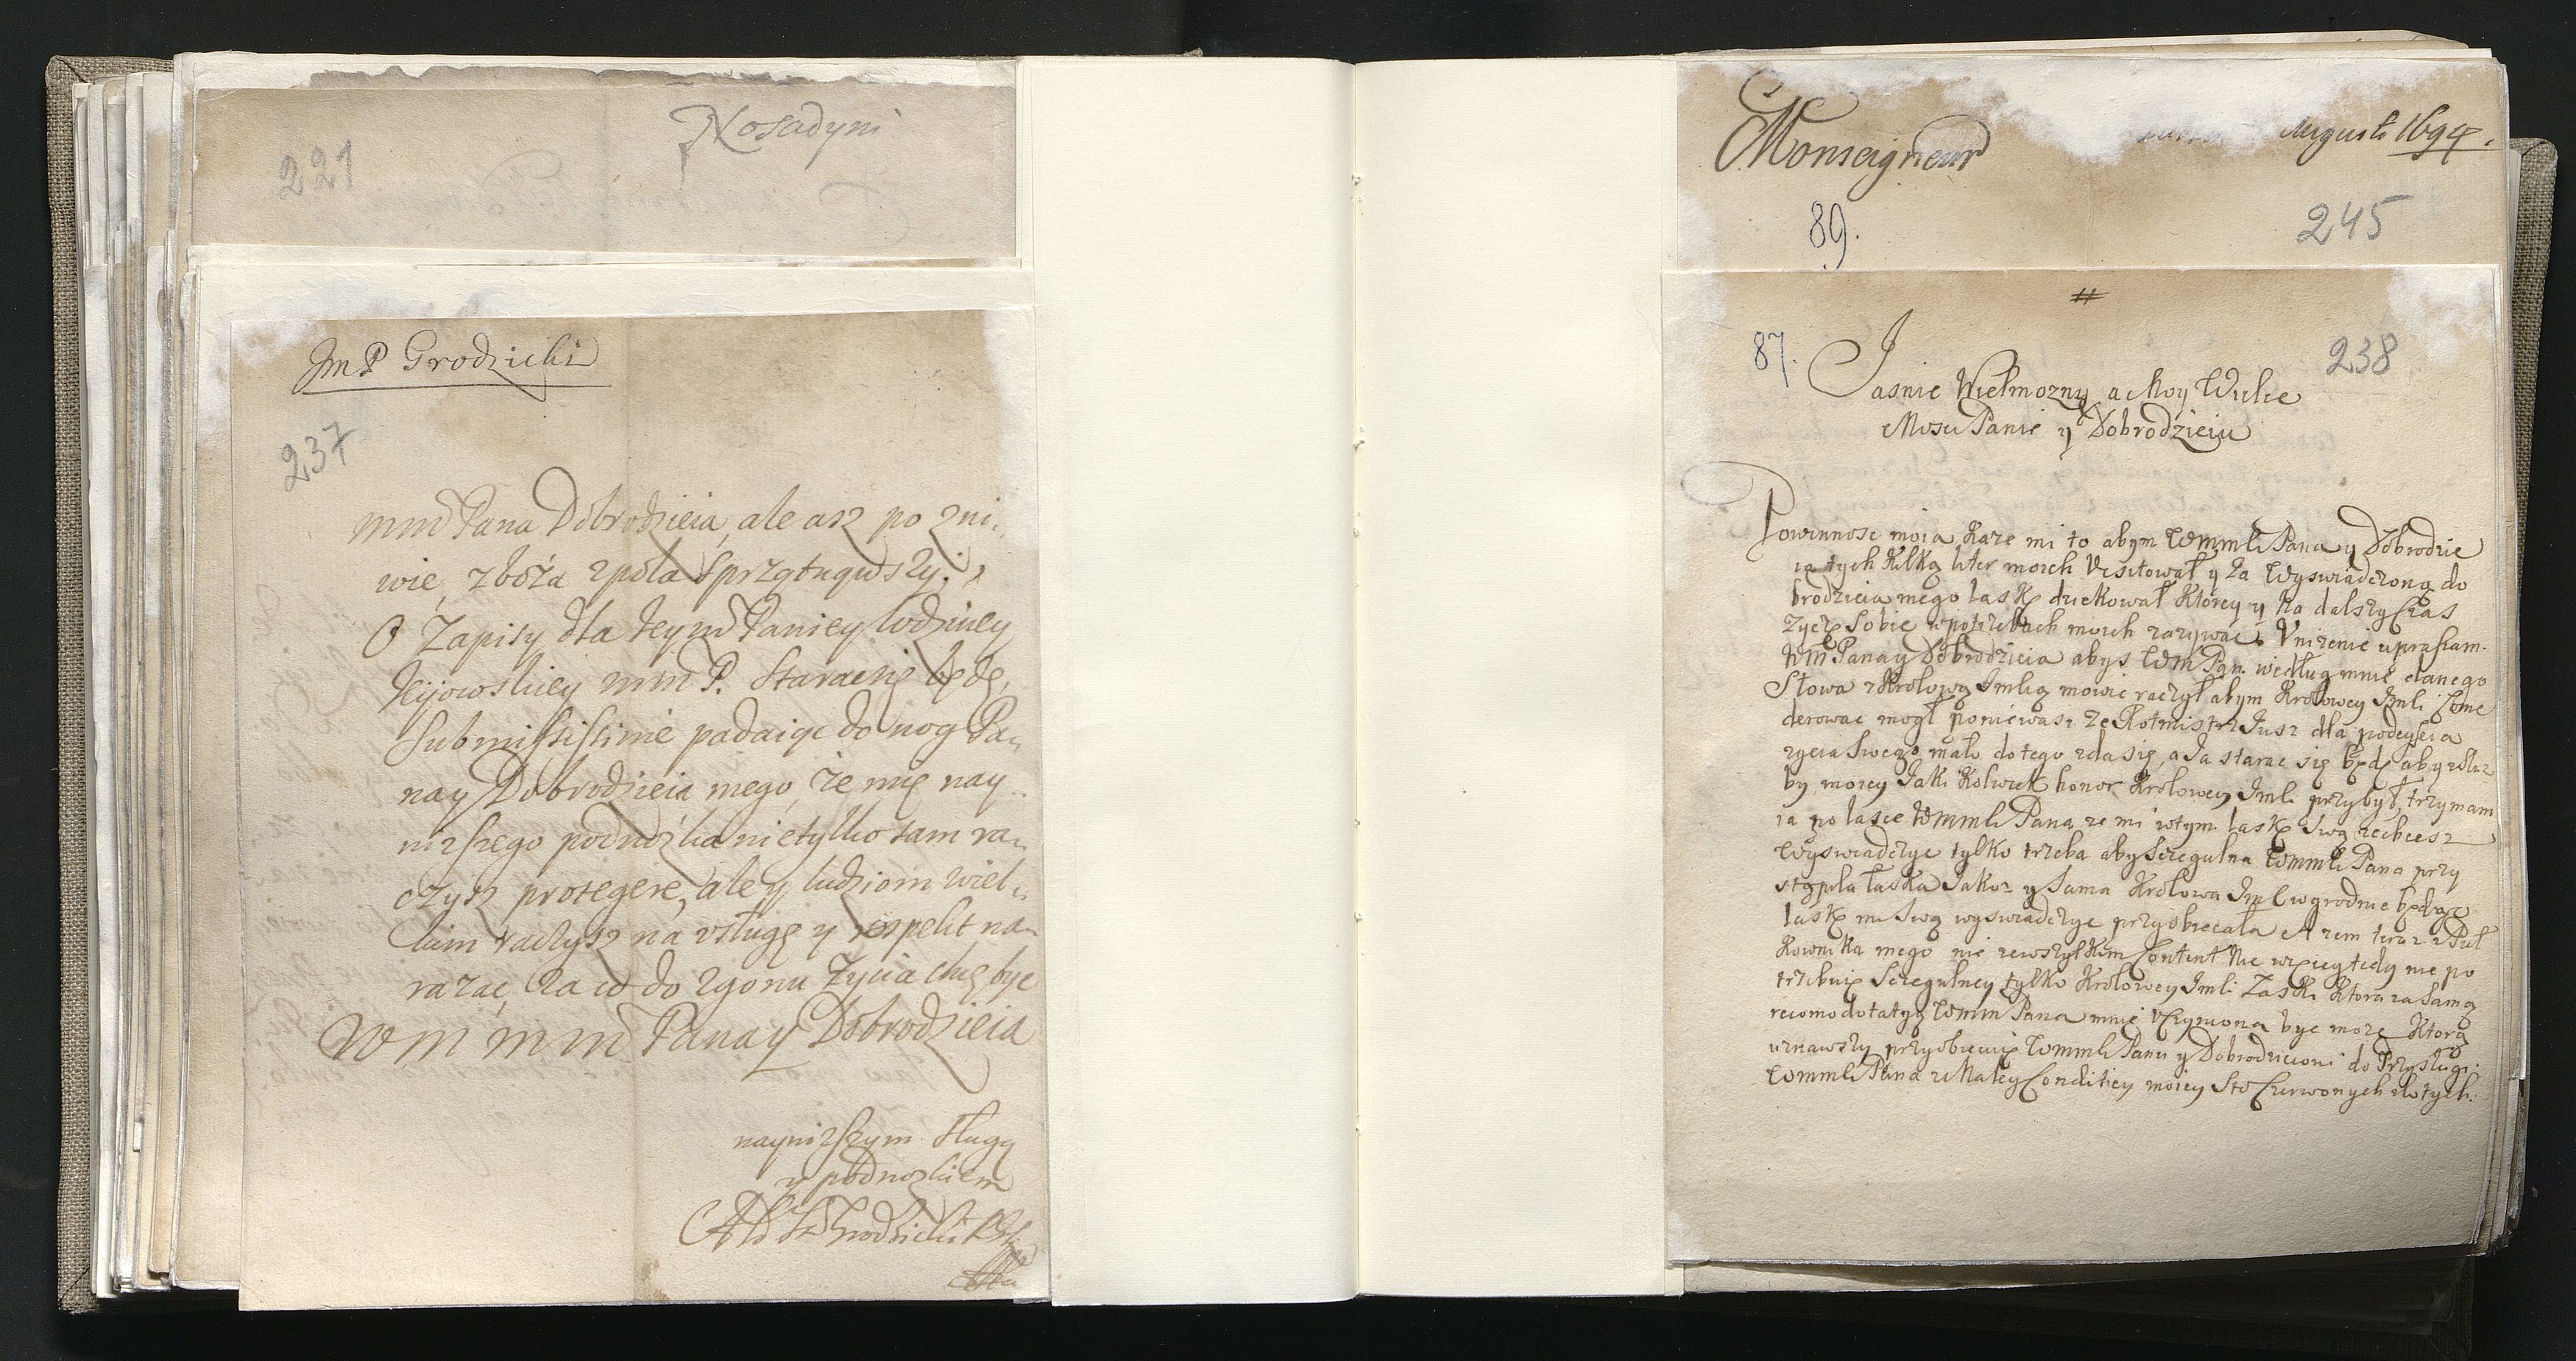 Nosadyni
221
JmP Grodzicki
237
mm Pana Dobrodzieia, ale asz po zni„
wie, zboża z pola sprzątnąwszy.
O Zapisy dla Jeym Paniey
Kijowskiey mm P. starac się będę,
Submissisime padaiąc do nog Pa„
nay Dobrodzieia mego, że mię nay„
nizszego podnożka nie tylko tam ra„
czysz protegere, ale y ludziom wiel„
kim raczysz na usługę y respekt na„
razac, za co do zgonu życia chcę byc
W M m m Pana y Dobrodzieia
naynizszym sługą
y podnozkiem
Monseigneur
Augusti 1694.
89.
245
#
87.
238
Jasnie Wielmozny a Moy Wielce
Mosci Panie y Dobrodzieiu
Powinnosc moia Kaze mi to abym Wmmli Pana y Dobrodzie
ia tych Kilką liter moich Visitował y Za Wyswiadczoną do
brodzieia mego laskę dziekował Ktorey y Na dalszy Czas
Zyczę Sobie w potrzebach moich zazywac. Vnizenie upraszam
Wm Pana y Dobrodzieia abys Wm Pan według mnie danego
Słowa z Krolową Jmlią mowic raczył abym Krolowey Jmli
derowac mogł poniewasz ze Rotmistrz Jusz dla podeyscia
zycia swego mało do tego zda się, a Ja starac się będę aby z słuz
by moiey Jaki Kolwiek honor Krolowey Jmli przybył, trzymam
ia po lasce Wmmli Pana ze mi w tym laskę swą zechcesz
Wyswiadczyc tylko trzeba aby Szczegulna Wmmli Pana przy
stąpiła łaska Jakoz y Sama Krolowa Jml w grodnie będąc
laskę mi Swą wyswiadczyc przyobiecała A zem teraz z Puł
Kownika mego nie zewszytkim Content Nic więcy tedy nie po
trzebuię Szczegulney tylko Krolowey Jmli Zaski Ktora za Samą
recomodotatyą Wmm Pana mnie Uczyniona byc moze Ktorą
uznawszy przyobiecuię Wmmli Panu y Dobrodzieiowi do Przysługi
Wmmli Pana z Małey Conditiey moiey Sto Czerwonych złotych.